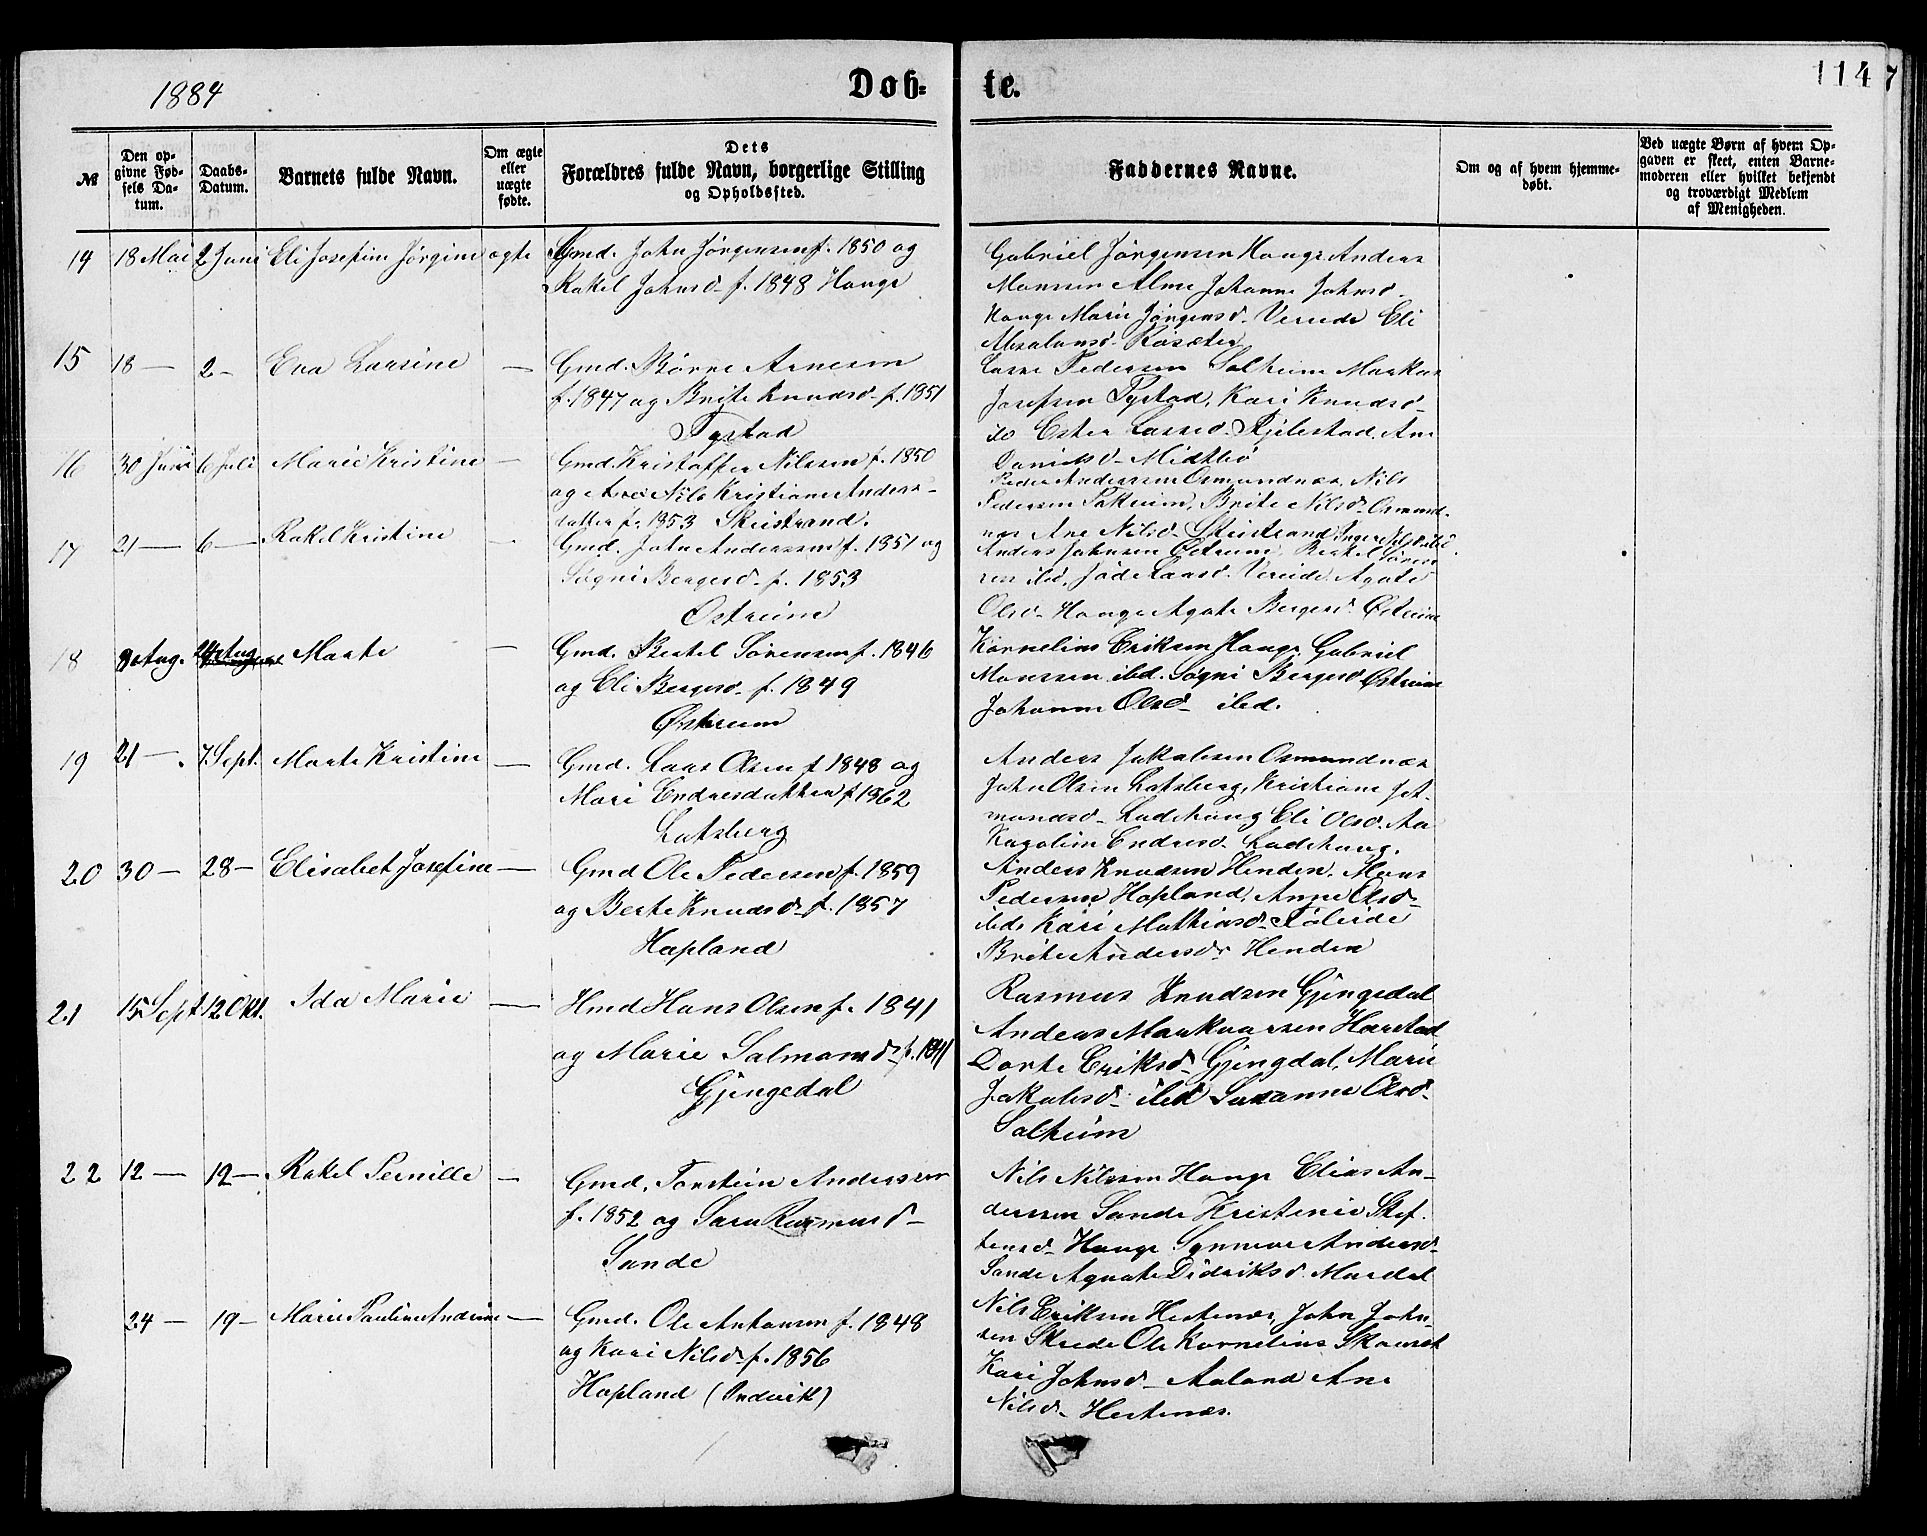 1884
Døb-
te.
114
7
№
Den op-
givne Fød-
sels Da-
tum.
Daabs-
Datum.
Barnets fulde Navn.
Om ægte
eller
uægte
fødte.
Dets
Forældres fulde Navn, borgerlige Stilling
og Opholdssted.
Faddernes Navne.
Om og af hvem hjemme-
døbt.
Ved uægte Børn af hvem Op-
gaven er skeet, enten Barne-
moderen eller hvilket bekjendt
og troværdigt Medlem
af Menigheden.
14 18 Mai 2 Juni Eli Josefine Jørgine ægte Gmd. John Jørgensen f. 1850 og
Rakel Johnsd. f. 1848 Hauge
Gabriel Jørgensen Hauge Anders
Monsen Alme Johanne Johnsd.
Hauge Marie Jørgensd. Vereide Eli
Absalonsd.
15 18 — 2 - Eva Larsine — Gmd. Børre Arnesen
f. 1847 og Brite Knudsd. f. 1851
Tystad
Lasse Pedersen Solheim Markus
Josefsen Tystad, Kari Knudsd.
ibd Ester Lassed. Ane
Danielsd. Midtbø
16 30 Juni 6 Juli Marie Kristine — Gmd. Kristoffer Nilssen f. 1850
og Kristiane Anders-
datter f. 1853 Skeistrand.
Peder Anderssen Osmundnæs, Nils
Pedersen Brite Nilsd. Osmund-
næs Ane Nilsd. Skeistrand
17 21 — 6 — Rakel Kristine — Gmd. John Anderssen f. 1851 og
Søgni Bergesd. f. 1853
Østreim
Anders Johnsen Østreim Bertel Søren-
sen ibd. Vereide Agate
Olsd. Hauge Agate Bergesd. Østreim
18 8 Aug. 24 Aug Marte — Gmd. Bertel Sørensen f. 1846
og Eli Bergesd. f. 1849
Østreim
Kornelius Eriksen Hauge Gabriel
Monssen ibd. Søgni Bergesd. Østreim
Johanne Olsd. ibd.
19 21 — 7 Sept. Marte Kristine — Gmd. Lars Olsen f. 1848 og
Mari Endresdatter f. 1862
Lotsberg
Anders Jakobsen Osmundnæs
John Olsen Lotsberg, Kristiane
Eli Olsd. Aa
Karoline Endresd.
20 30 — 28 — Elisabet Josefine — Gmd Ole Pedersen f. 1859
og Berte Knudsd. f. 1857
Hopland
Anders Knudsen Henden, Mons
Pedersen Hopland, Anne Olsd.
ibd. Kari Mathiasd.
Brite Andersd. Henden
21 15 Sept. 12 Okt. Ida Marie — Hmd Hans Olsen f. 1841
og Marie Salmonsd. f. 1841
Gjengedal
Rasmus Knudsen Gjengedal
Anders Markussen Hørstad
Dorte Eriksd. Gjengdal, Marie
Jakobsd. ibd Susanne Olsd.
Solheim
22 12 — 19 — Rakel Pernille — Gmd. Torstein Anderssen
f. 1852 og Sara Rasmusd.
Sande
Nils Nilssen Hauge Elias An-
derssen Sande Kristense Stef-
fensd. Hauge Synneve Andersd.
Sande Agnate Didriksd. Mardal
24 — 19 — Marie Pauline Andrine — Gmd. Ole Antonsen f. 1848
og Kari Nilsd. f. 1856
Hopland (Indvik)
Nils Eriksen Hestenæs, John John-
sen Skrede Ole Kornelius
Kari Johnsd. Aaland Ane
Nilsd. Hestenæs.